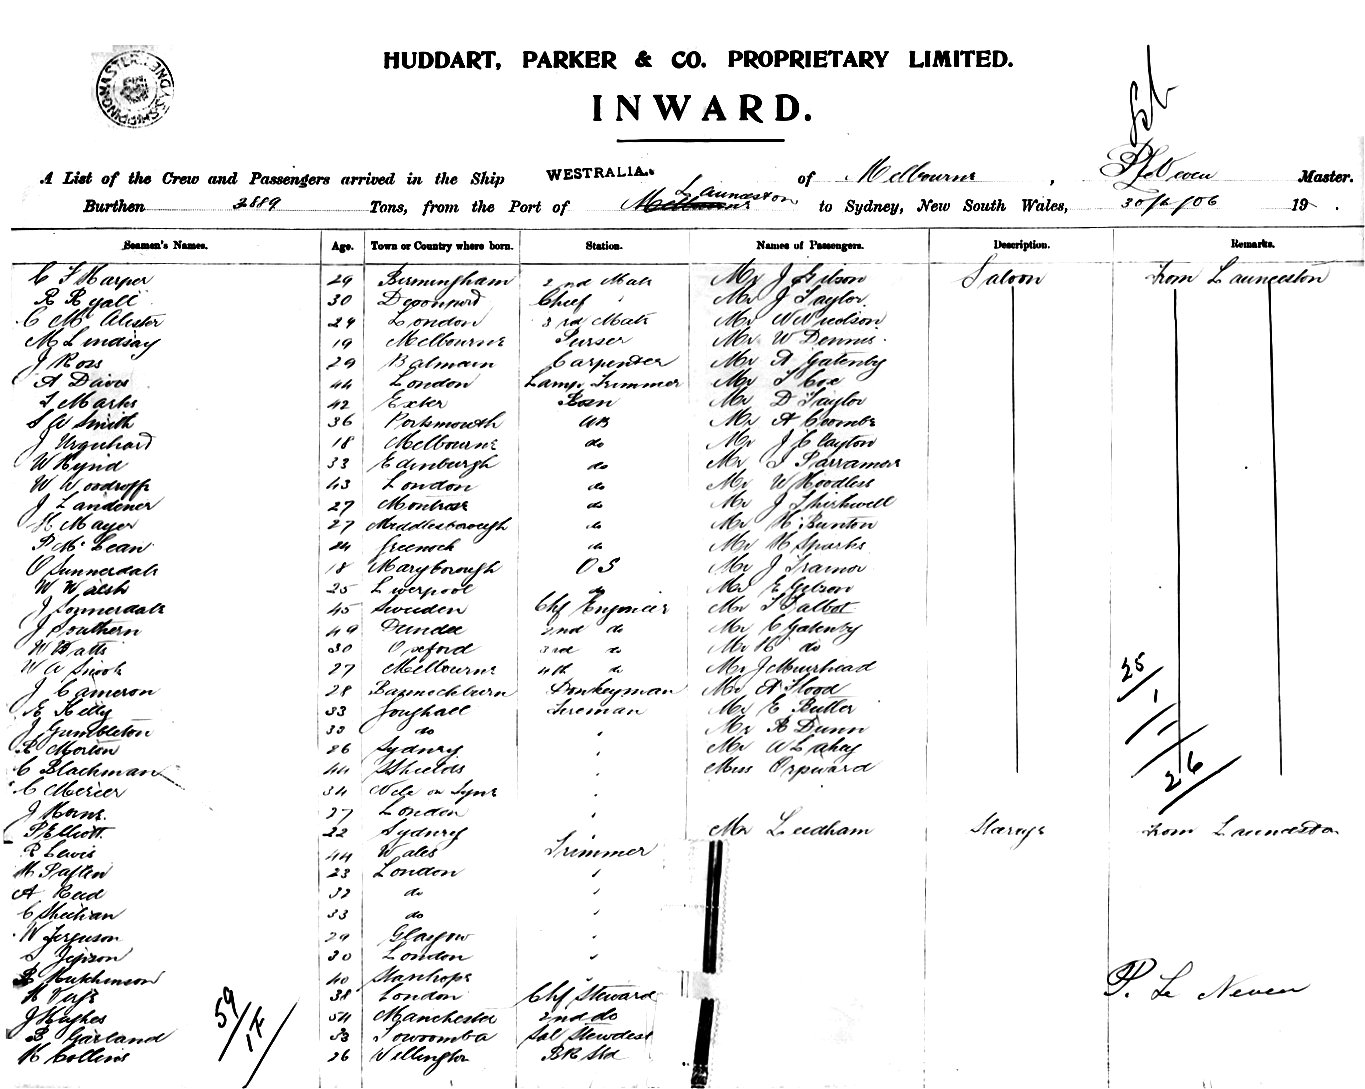 HUDDART, PARKER & CO. PROPRIETARY LIMITED.
INWARD.
A List of the Crew and Passengers arrived in the Ship WESTRALIA. of Melbourne, P Le Neven Master.
Burthen 2889 Tons, from the Port of Launceston to Sydney, New South Wales, 30/ /06 19 .
Seamen's Names. Age. Town or Country where born. Station. Names of Passengers. Description. Remarks.
C F Harper 29 Birmingham 2nd Mate Mr J Gilson Saloon From Launceston
R Ryall 30 Devonport Chief " Mr J Taylor
C McAlister 24 London 3rd Mate Mr W Nicolson
M Lindsay 19 Melbourne Purser Mr W Dennis
J Ross 29 Balmain Carpenter Mr R Gatenby
A Davis 44 London Lamp Trimmer Mr T Cox
T Marks 42 Exeter Bosn Mr D Taylor
S W Smith 36 Portsmouth AB Mr A Coombe
J Urquhard 18 Melbourne do Mr J Clayton
W Kynd 33 Edinburgh do Mr J Parramore
W Woodroff 43 London do Mr W Hoodless
J Landener 27 Montrose do Mr J Thirkwell
H Mayer 27 Middlesborough do Mr H Bunton
P McLean 24 Greenock do Mr H Sparks
O Sunnerdale 18 Maryborough OS Mr J Trainor
W Walsh 25 Liverpool do Mr E Gibson
J Sonnerdale 45 Sweden Chf Engineer Mr T Talbot
J Southern 49 Dundee 2nd do Mr C Gatenby
W Watts 30 Oxford 3rd do Mr R do
W A Snook 27 Melbourne 4th do Mr J Muirhead
J Cameron 28 Bannockburn Donkeyman Mr A Flood
E Kelly 33 Youghall Fireman Mr E Butler
J Gumbleton 33 do " Mr R Dunn
R Morton 26 Sydney " Mr W Lahay
C Blachman 44 SShields " Miss Orpward
C Mercer 34 Ncle on Tyne "
J Horne 27 London "
P Elliott 22 Sydney Mr Leedham Steerage From Launceston
R Lewis 44 Wales Trimmer
M Paften 23 London "
A Reid 32 do "
C Sheehan 33 do "
W Ferguson 29 Glasgow "
S Jepson 30 London "
R Hutchinson 40 Stanhope "
H Vage 38 London Chf Steward
J Hughes 54 Manchester 2nd do
B Garland 33 Towoomba Sal Stewdess
H Collins 26 Wellington BR Std
25
1
26
P. Le Neven
59/17